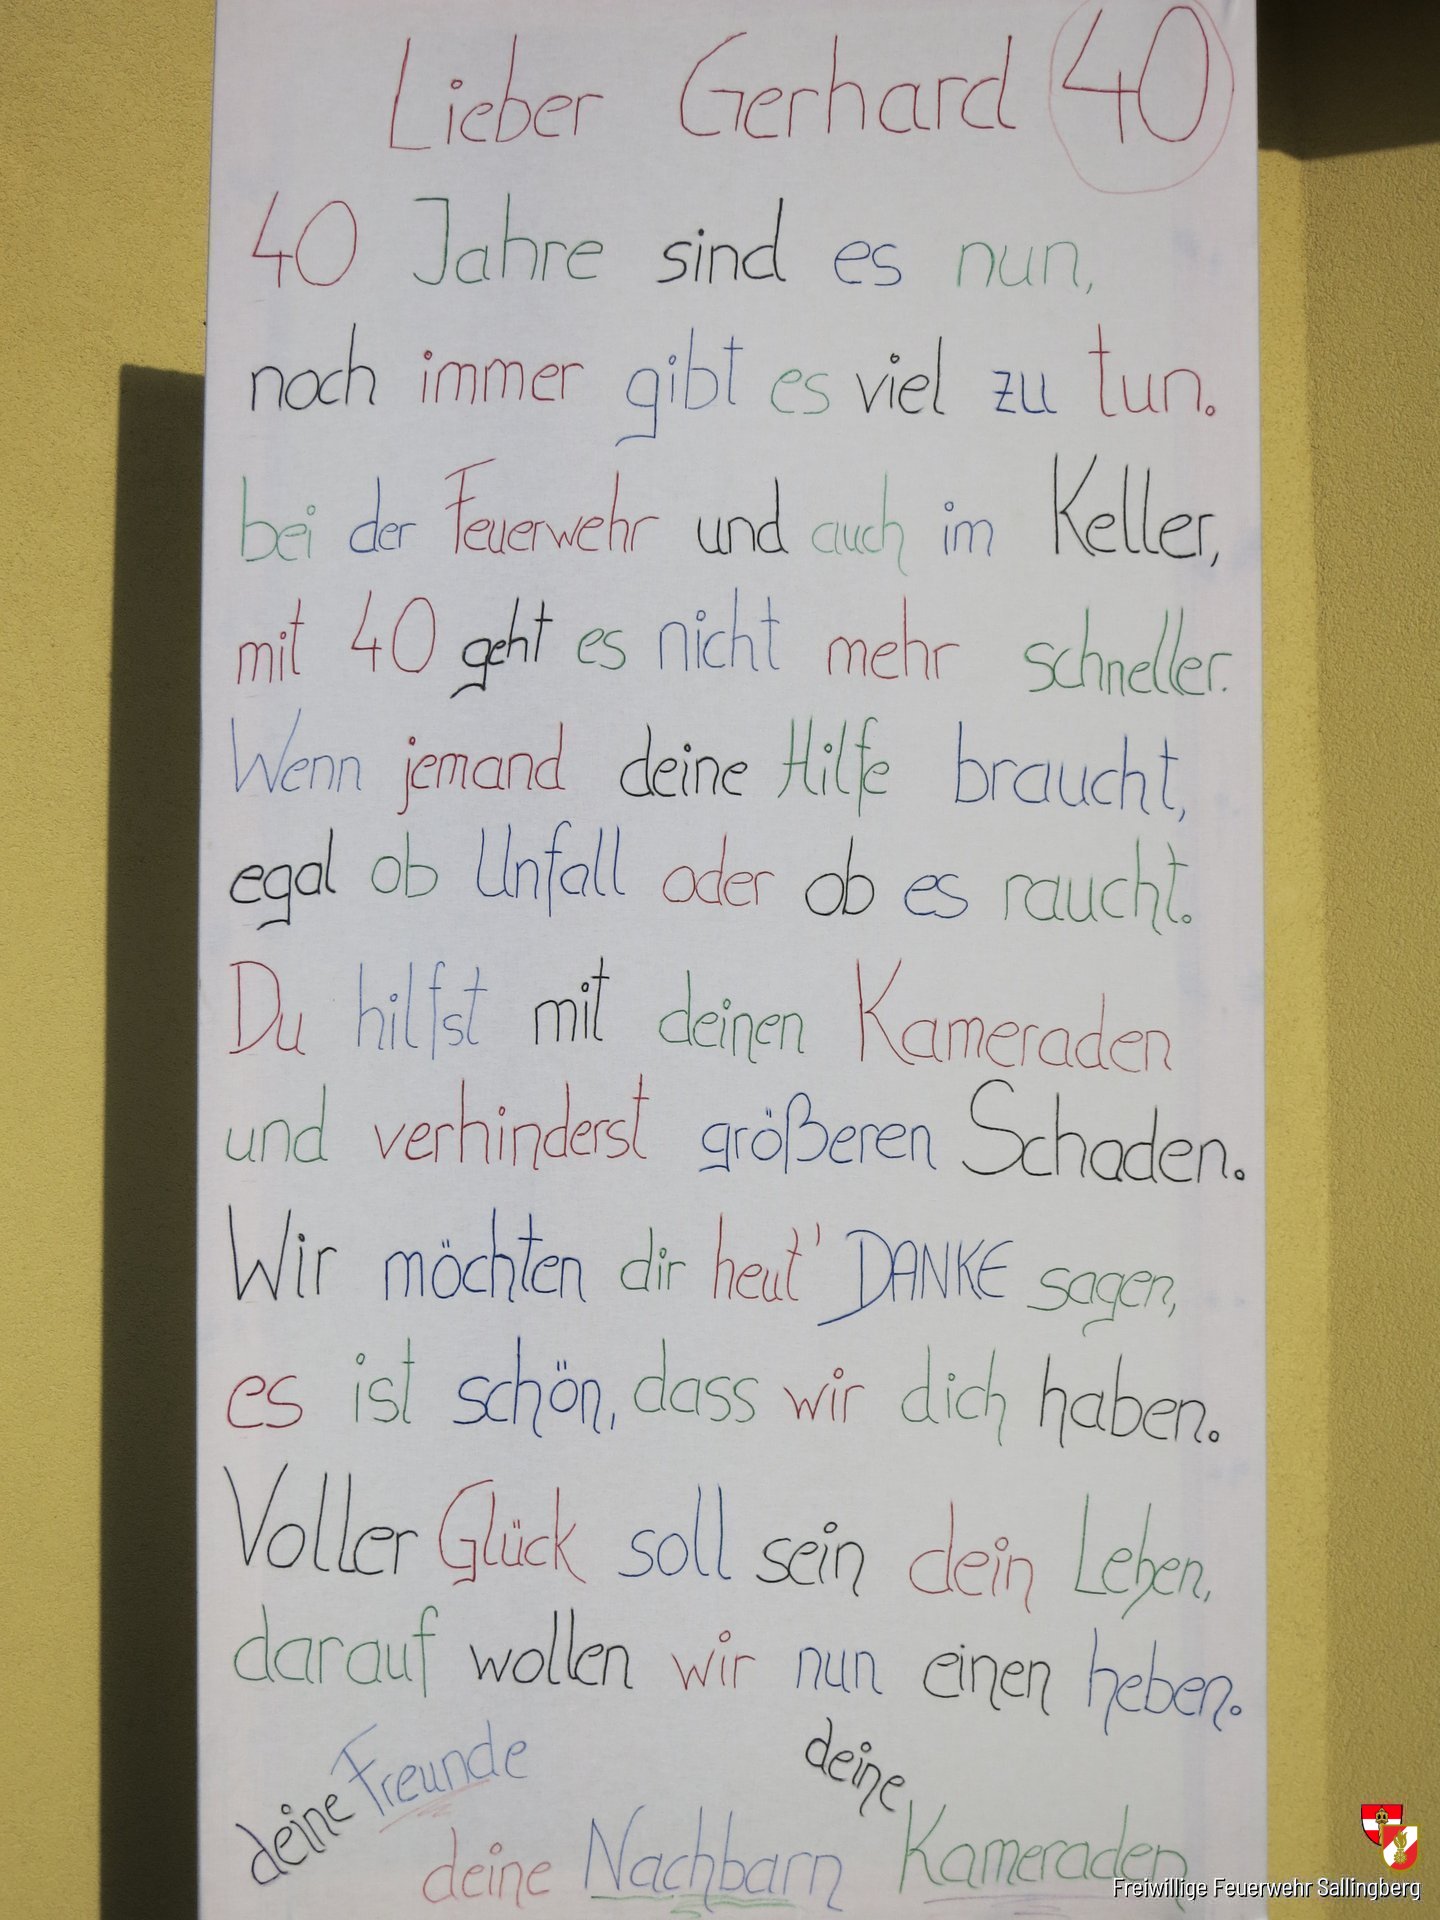 Lieber Gerhard 40
40 Jahre sind es nun,
noch immer gibt es viel zu tun.
bei der Feuerwehr und auch im Keller,
mit 40 geht es nicht mehr schneller.
Wenn jemand deine Hilfe braucht,
egal ob Unfall oder ob es raucht.
Du hilfst mit deinen Kameraden
und verhinderst größeren Schaden.
Wir möchten dir heut' DANKE sagen,
es ist schön, dass wir dich haben.
Voller Glück soll sein dein Leben,
darauf wollen wir nun einen heben.
deine Freunde
deine Nachbarn
deine Kameraden
Freiwillige Feuerwehr Sallingberg